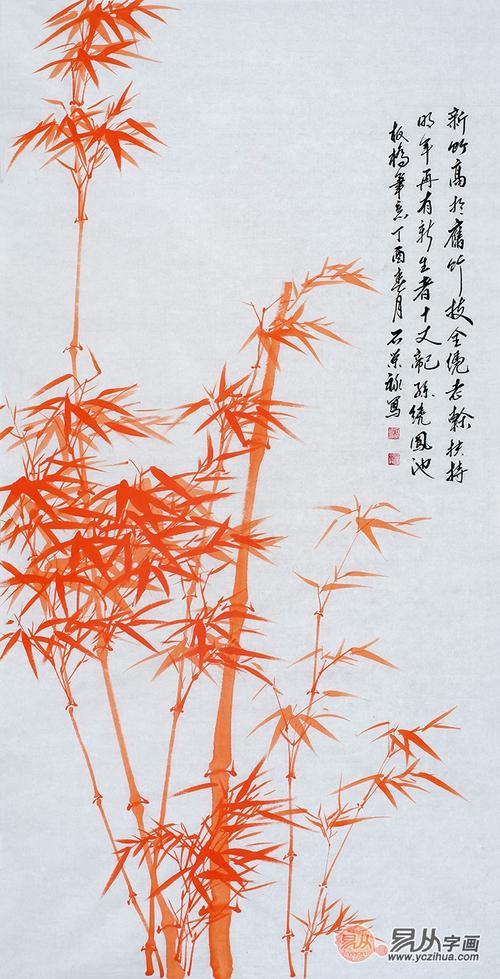 新竹高於舊竹枝全凭老榦扶持
明年再有新生者十丈龍孫繞鳳池
板橋筆意丁酉春月石荣禄寫
易从字画
www.yczihua.com